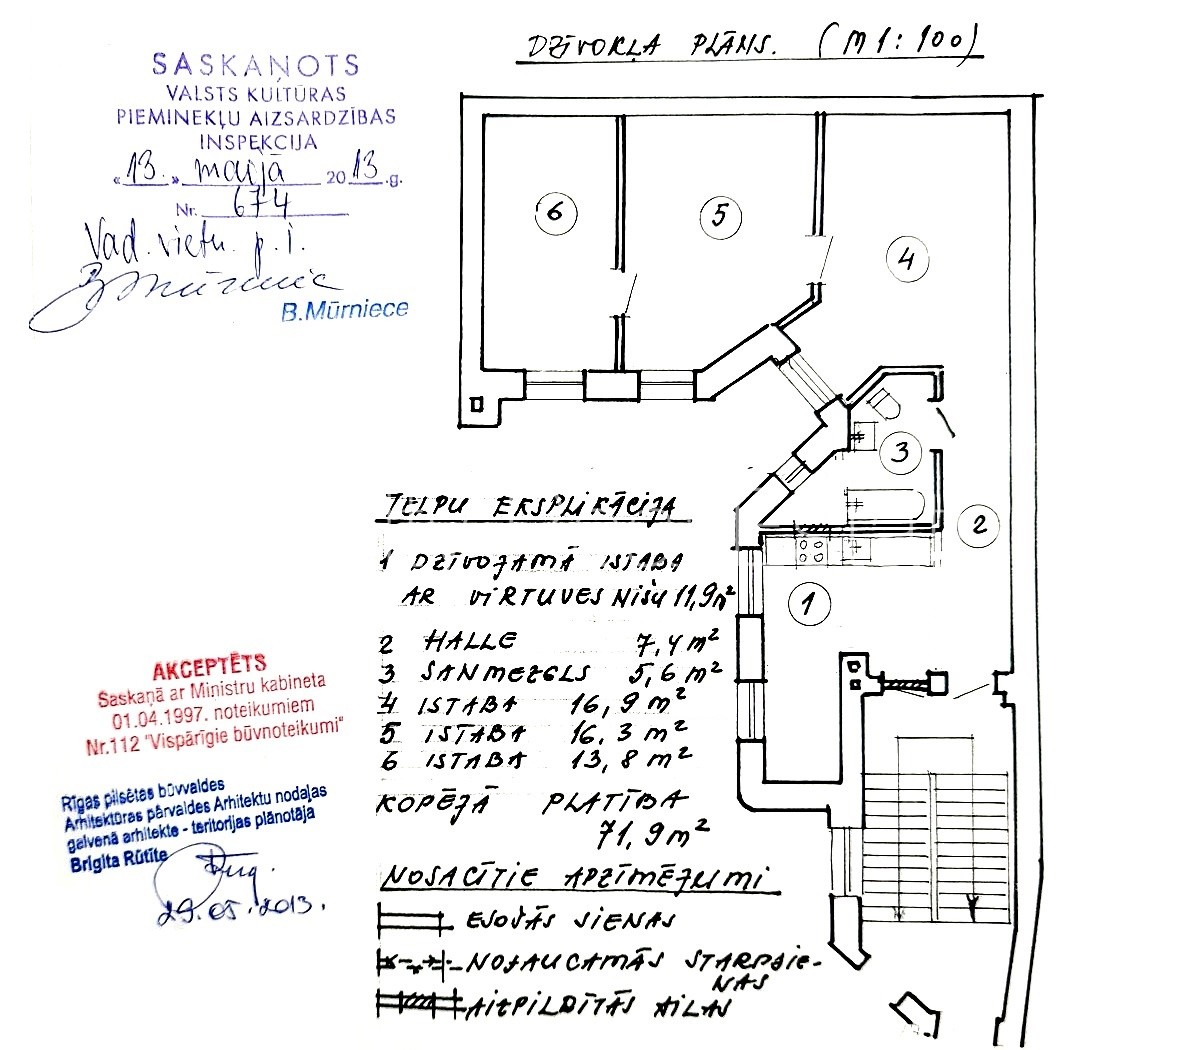 DZĪVOKĻA PLĀNS. (M 1:100)
SASKAŅOTS
VALSTS KULTŪRAS
PIEMINEKĻU AIZSARDZĪBAS
INSPEKCIJA
«13.» maijā 2013.g.
Nr. 674
Vad. vietn. p.i.
B.Mūrniece
6
5
4
3
2
1
TELPU EKSPLIKĀCIJA
1 DZĪVOJAMĀ ISTABA
AR VIRTUVES NIŠU 11,9m²
2 HALLE 7,4m²
3 SANMEZGLS 5,6m²
4 ISTABA 16,9m²
5 ISTABA 16,3m²
6 ISTABA 13,8m²
KOPĒJĀ PLATĪBA
71,9m²
NOSACĪTIE APZĪMĒJUMI
ESOŠĀS SIENAS
NOJAUCAMĀS STARPSIE-
NAS
AIZPILDĪTĀS AILAS
AKCEPTĒTS
Saskaņā ar Ministru kabineta
01.04.1997. noteikumiem
Nr.112 "Vispārīgie būvnoteikumi"
Rīgas pilsētas būvvaldes
Arhitektūras pārvaldes Arhitektu nodaļas
galvenā arhitekte - teritorijas plānotāja
Brigita Rūtīte
29.05.2013.